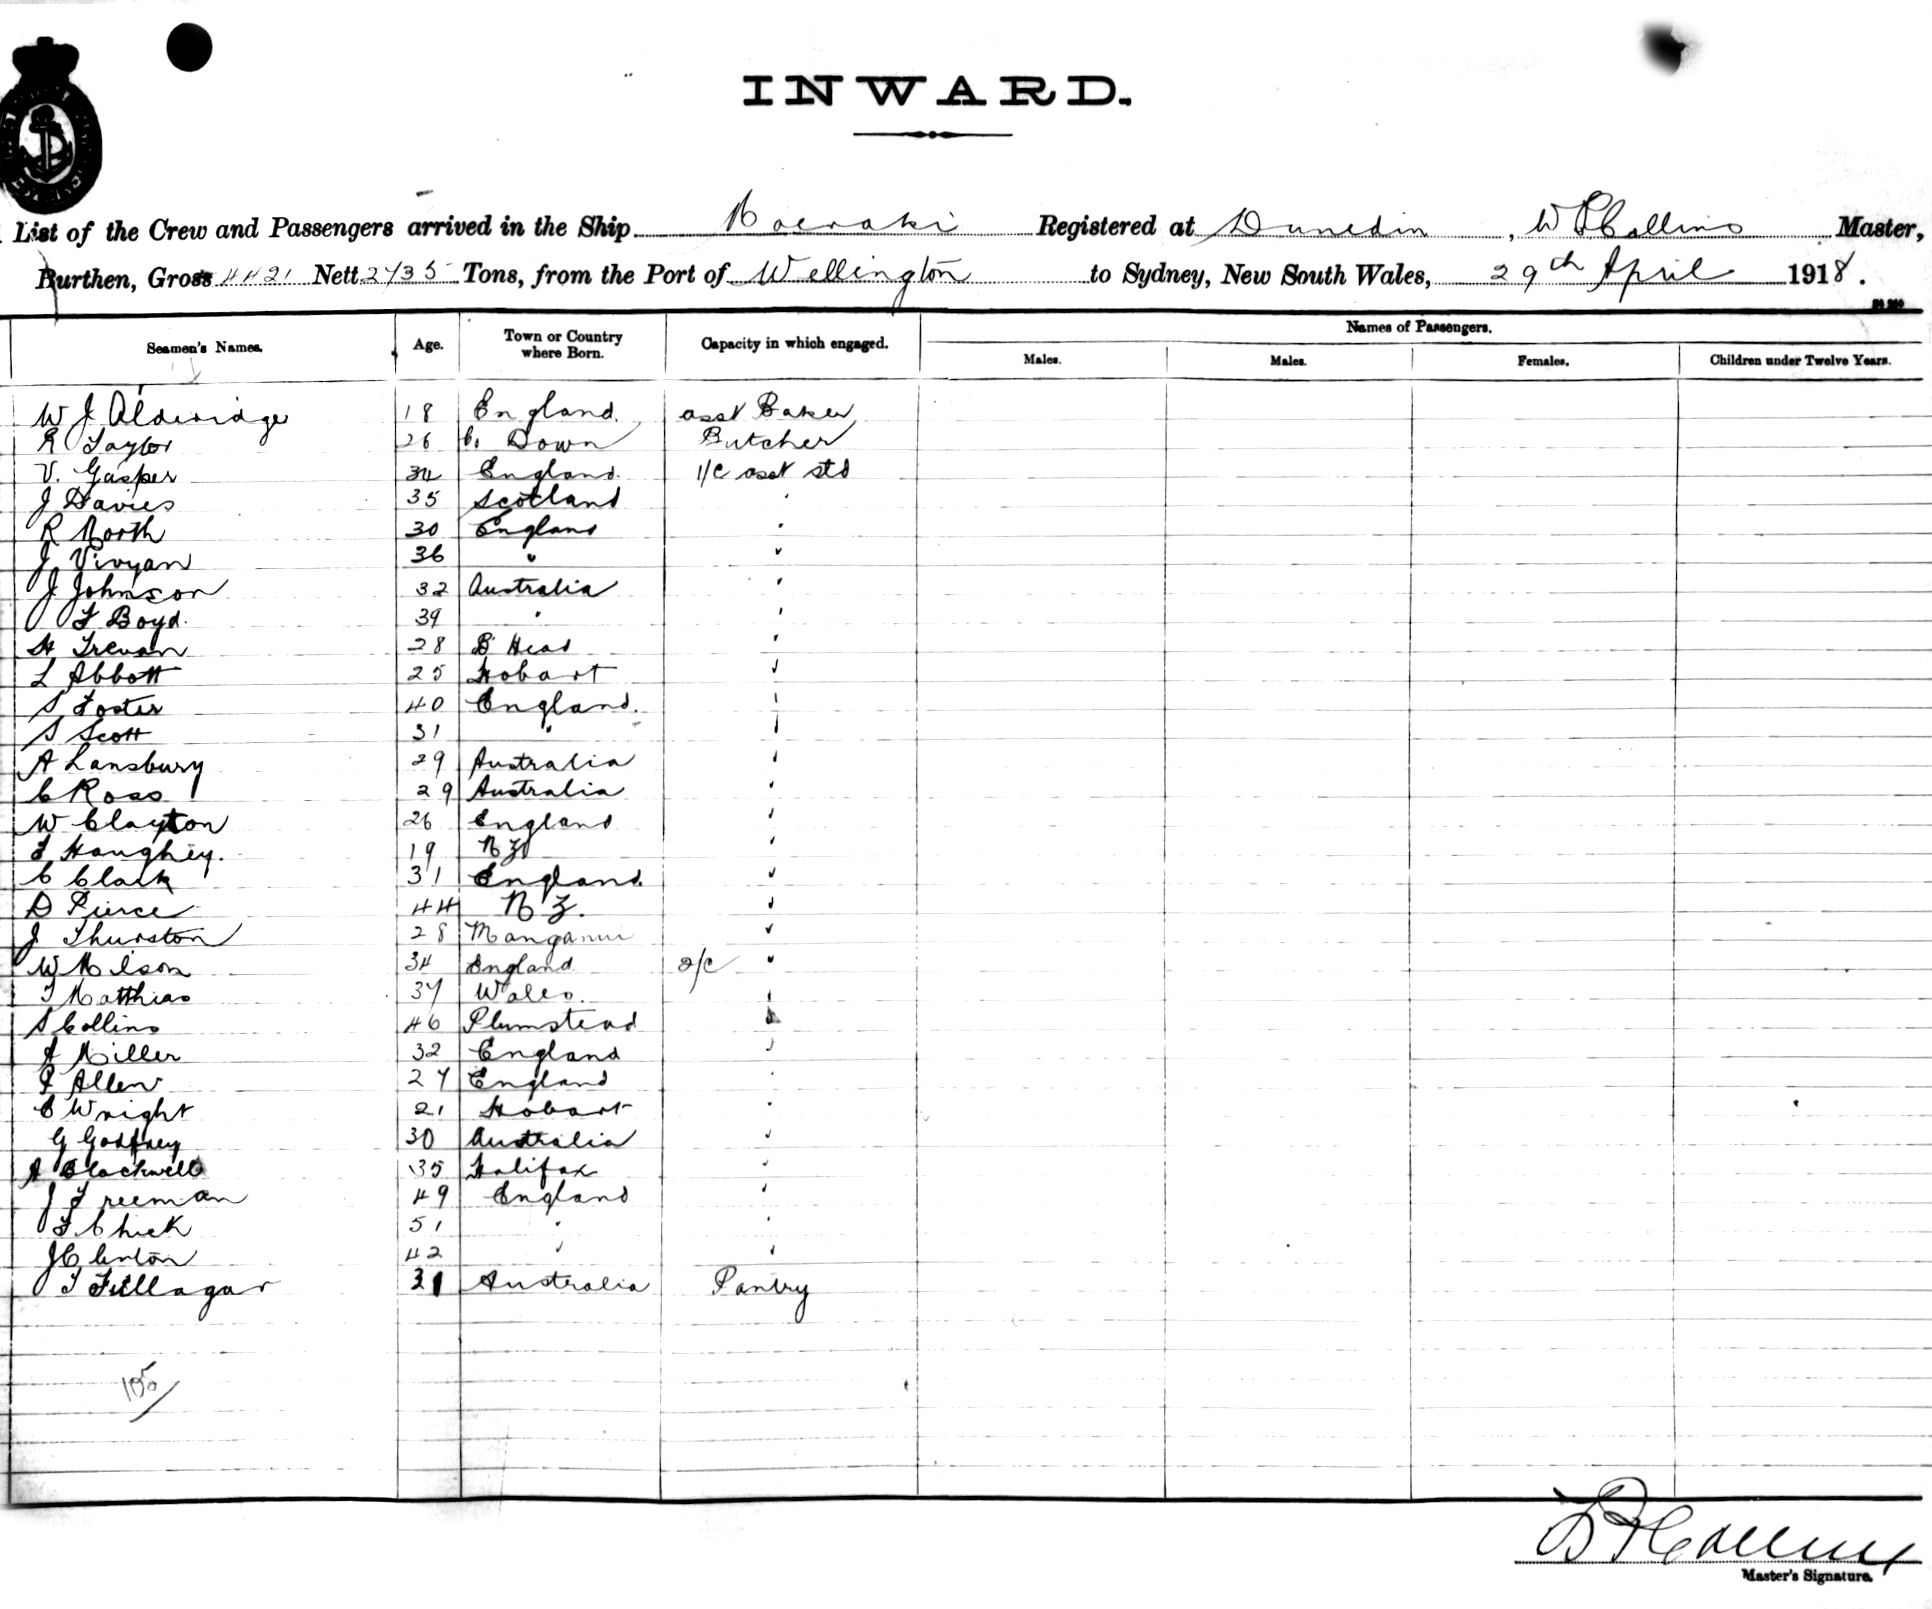 INWARD.
List of the Crew and Passengers arrived in the Ship Moeraki Registered at Dunedin, W P Collins Master,
Burthen, Gross 4421 Nett 2735 Tons, from the Port of Wellington to Sydney, New South Wales, 29th April 1918.
Names of Passengers.
Seamen's Names. Age. Town or Country where Born. Capacity in which engaged. Males. Males. Females. Children under Twelve Years.
W J Alderidge 18 England. asst Baker
R Taylor 26 Co Down Butcher
V. Gasper 34 England. 1/c asst std
J Davies 35 Scotland "
R North 30 England "
J Vivyan 36 " "
J Johnson 32 Australia "
F Boyd. 39 " "
H Trevan 28 B Head "
L Abbott 25 Hobart "
S Foster 40 England. "
S Scott 31 " "
A Lansbury 29 Australia "
C Ross 29 Australia "
W Clayton 26 England "
F Haughey. 19 NZ "
C Clark 31 England. "
D Pierce 44 N Z. "
J Thurston 28 Manganui "
W Nilson 34 England 2/c "
T Matthias 37 Wales. "
S Collins 46 Plumstead "
A Miller 32 England "
F Allen 27 England "
C Wright 21 Hobart "
G Godfrey 30 Australia "
A Blackwell 35 Halifax "
J Freeman 49 England "
F Chick 51 " "
J Clenton 42 " "
T Fillagar 31 Australia Pantry
105
W P Collins
Master's Signature.